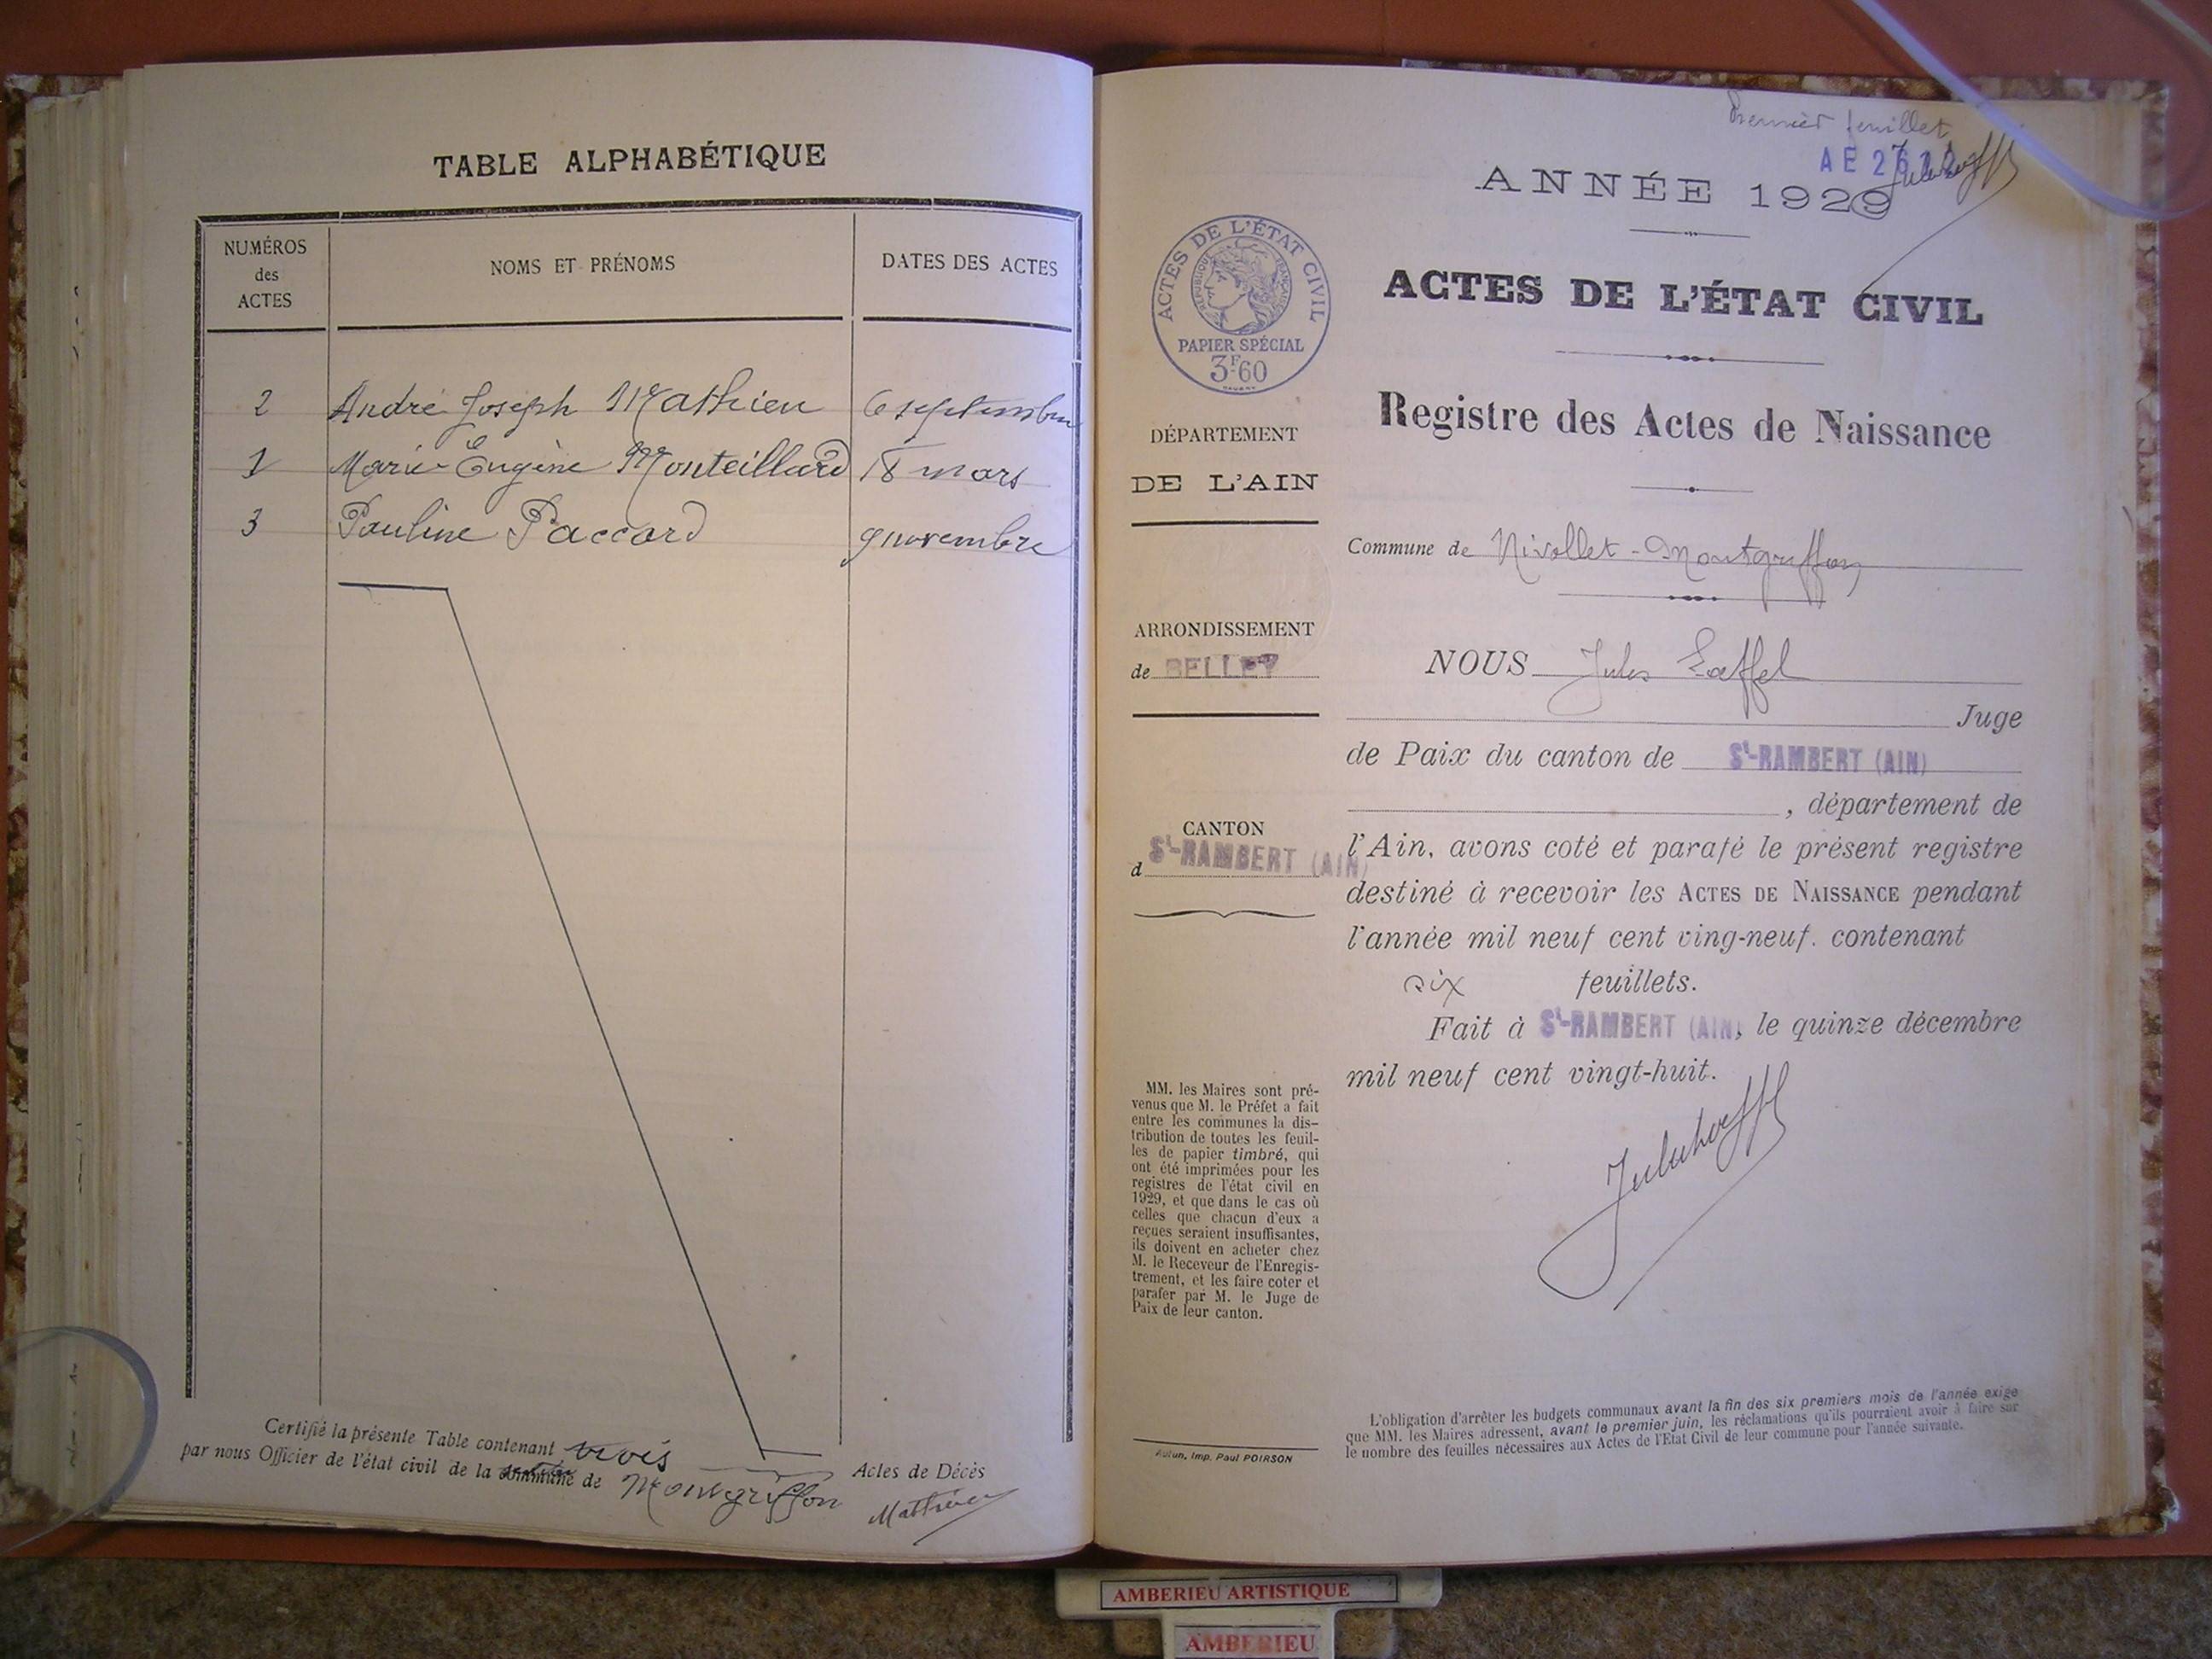 TABLE ALPHABÉTIQUE
NUMÉROS des ACTES
NOMS ET PRÉNOMS
DATES DES ACTES
2 André Joseph Mathieu 6 septembre
1 Marie-Eugène Monteillard 18 mars
3 Pauline Paccard 9 novembre
Certifié la présente Table contenant trois
par nous Officier de l'état civil de la commune de Montgriffon Actes de Décès
Mathieu
Premier feuillet
AE 26
ANNÉE 1929
ACTES DE L'ÉTAT CIVIL
RÉPUBLIQUE FRANÇAISE
PAPIER SPÉCIAL
3F60
ACTES DE L'ÉTAT CIVIL
Registre des Actes de Naissance
DÉPARTEMENT
DE L'AIN
ARRONDISSEMENT
de BELLEY
CANTON
d St-RAMBERT (AIN)
MM. les Maires sont pré-
venus que M. le Préfet a fait
entre les communes la dis-
tribution de toutes les feuil-
les de papier timbré, qui
ont été imprimées pour les
registres de l'état civil en
1929, et que dans le cas où
celles que chacun d'eux a
reçues seraient insuffisantes,
ils doivent en acheter chez
M. le Receveur de l'Enregis-
trement, et les faire coter et
parafer par M. le Juge de
Paix de leur canton.
Autun, Imp. Paul POIRSON
Commune de Nivollet-Montgriffon
NOUS Jules Loeffel
Juge
de Paix du canton de St-RAMBERT (AIN)
, département de
l'Ain, avons coté et parafé le présent registre
destiné à recevoir les ACTES DE NAISSANCE pendant
l'année mil neuf cent ving-neuf. contenant
six feuillets.
Fait à St-RAMBERT (AIN), le quinze décembre
mil neuf cent vingt-huit.
L'obligation d'arrêter les budgets communaux avant la fin des six premiers mois de l'année exige
que MM. les Maires adressent, avant le premier juin, les réclamations qu'ils pourraient avoir à faire sur
le nombre des feuilles nécessaires aux Actes de l'Etat Civil de leur commune pour l'année suivante.
AMBERIEU ARTISTIQUE
AMBERIEU